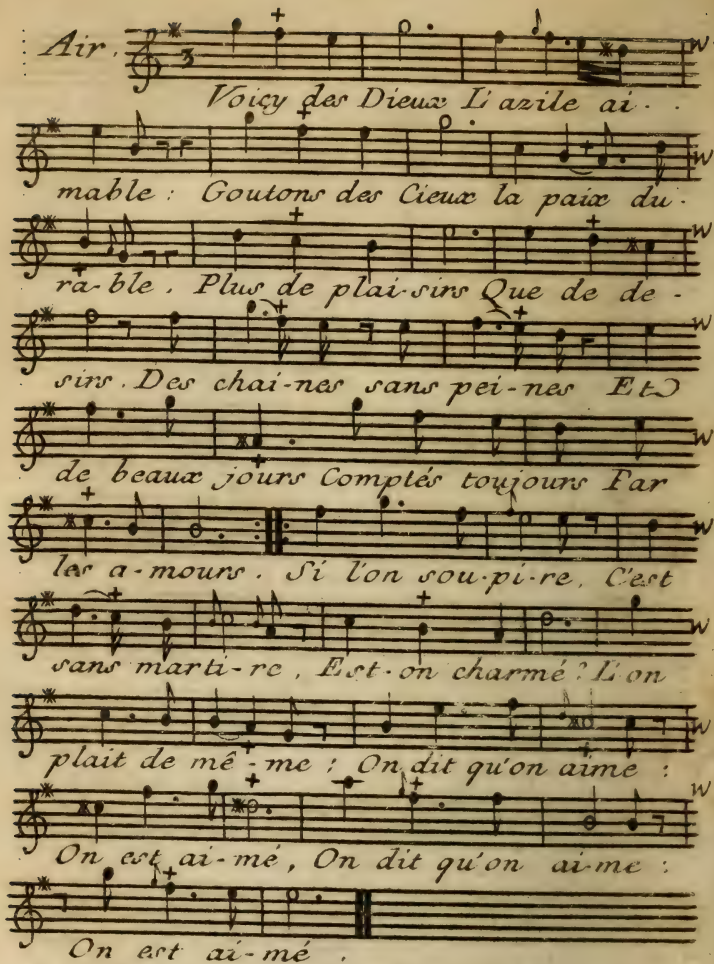 Air. 3
Voiçy des Dieux L'azile ai-
mable : Goutons des Cieux la paix du-
ra-ble. Plus de plai-sirs Que de de-
sirs. Des chai-nes sans pei-nes Et
de beaux jours Comptés toujours Par
les a-mours. Si l'on sou-pi-re, C'est
sans marti-re, Est-on charmé ? L'on
plait de mê-me : On dit qu'on aime :
On est ai-mé, On dit qu'on ai-me :
On est ai-mé.